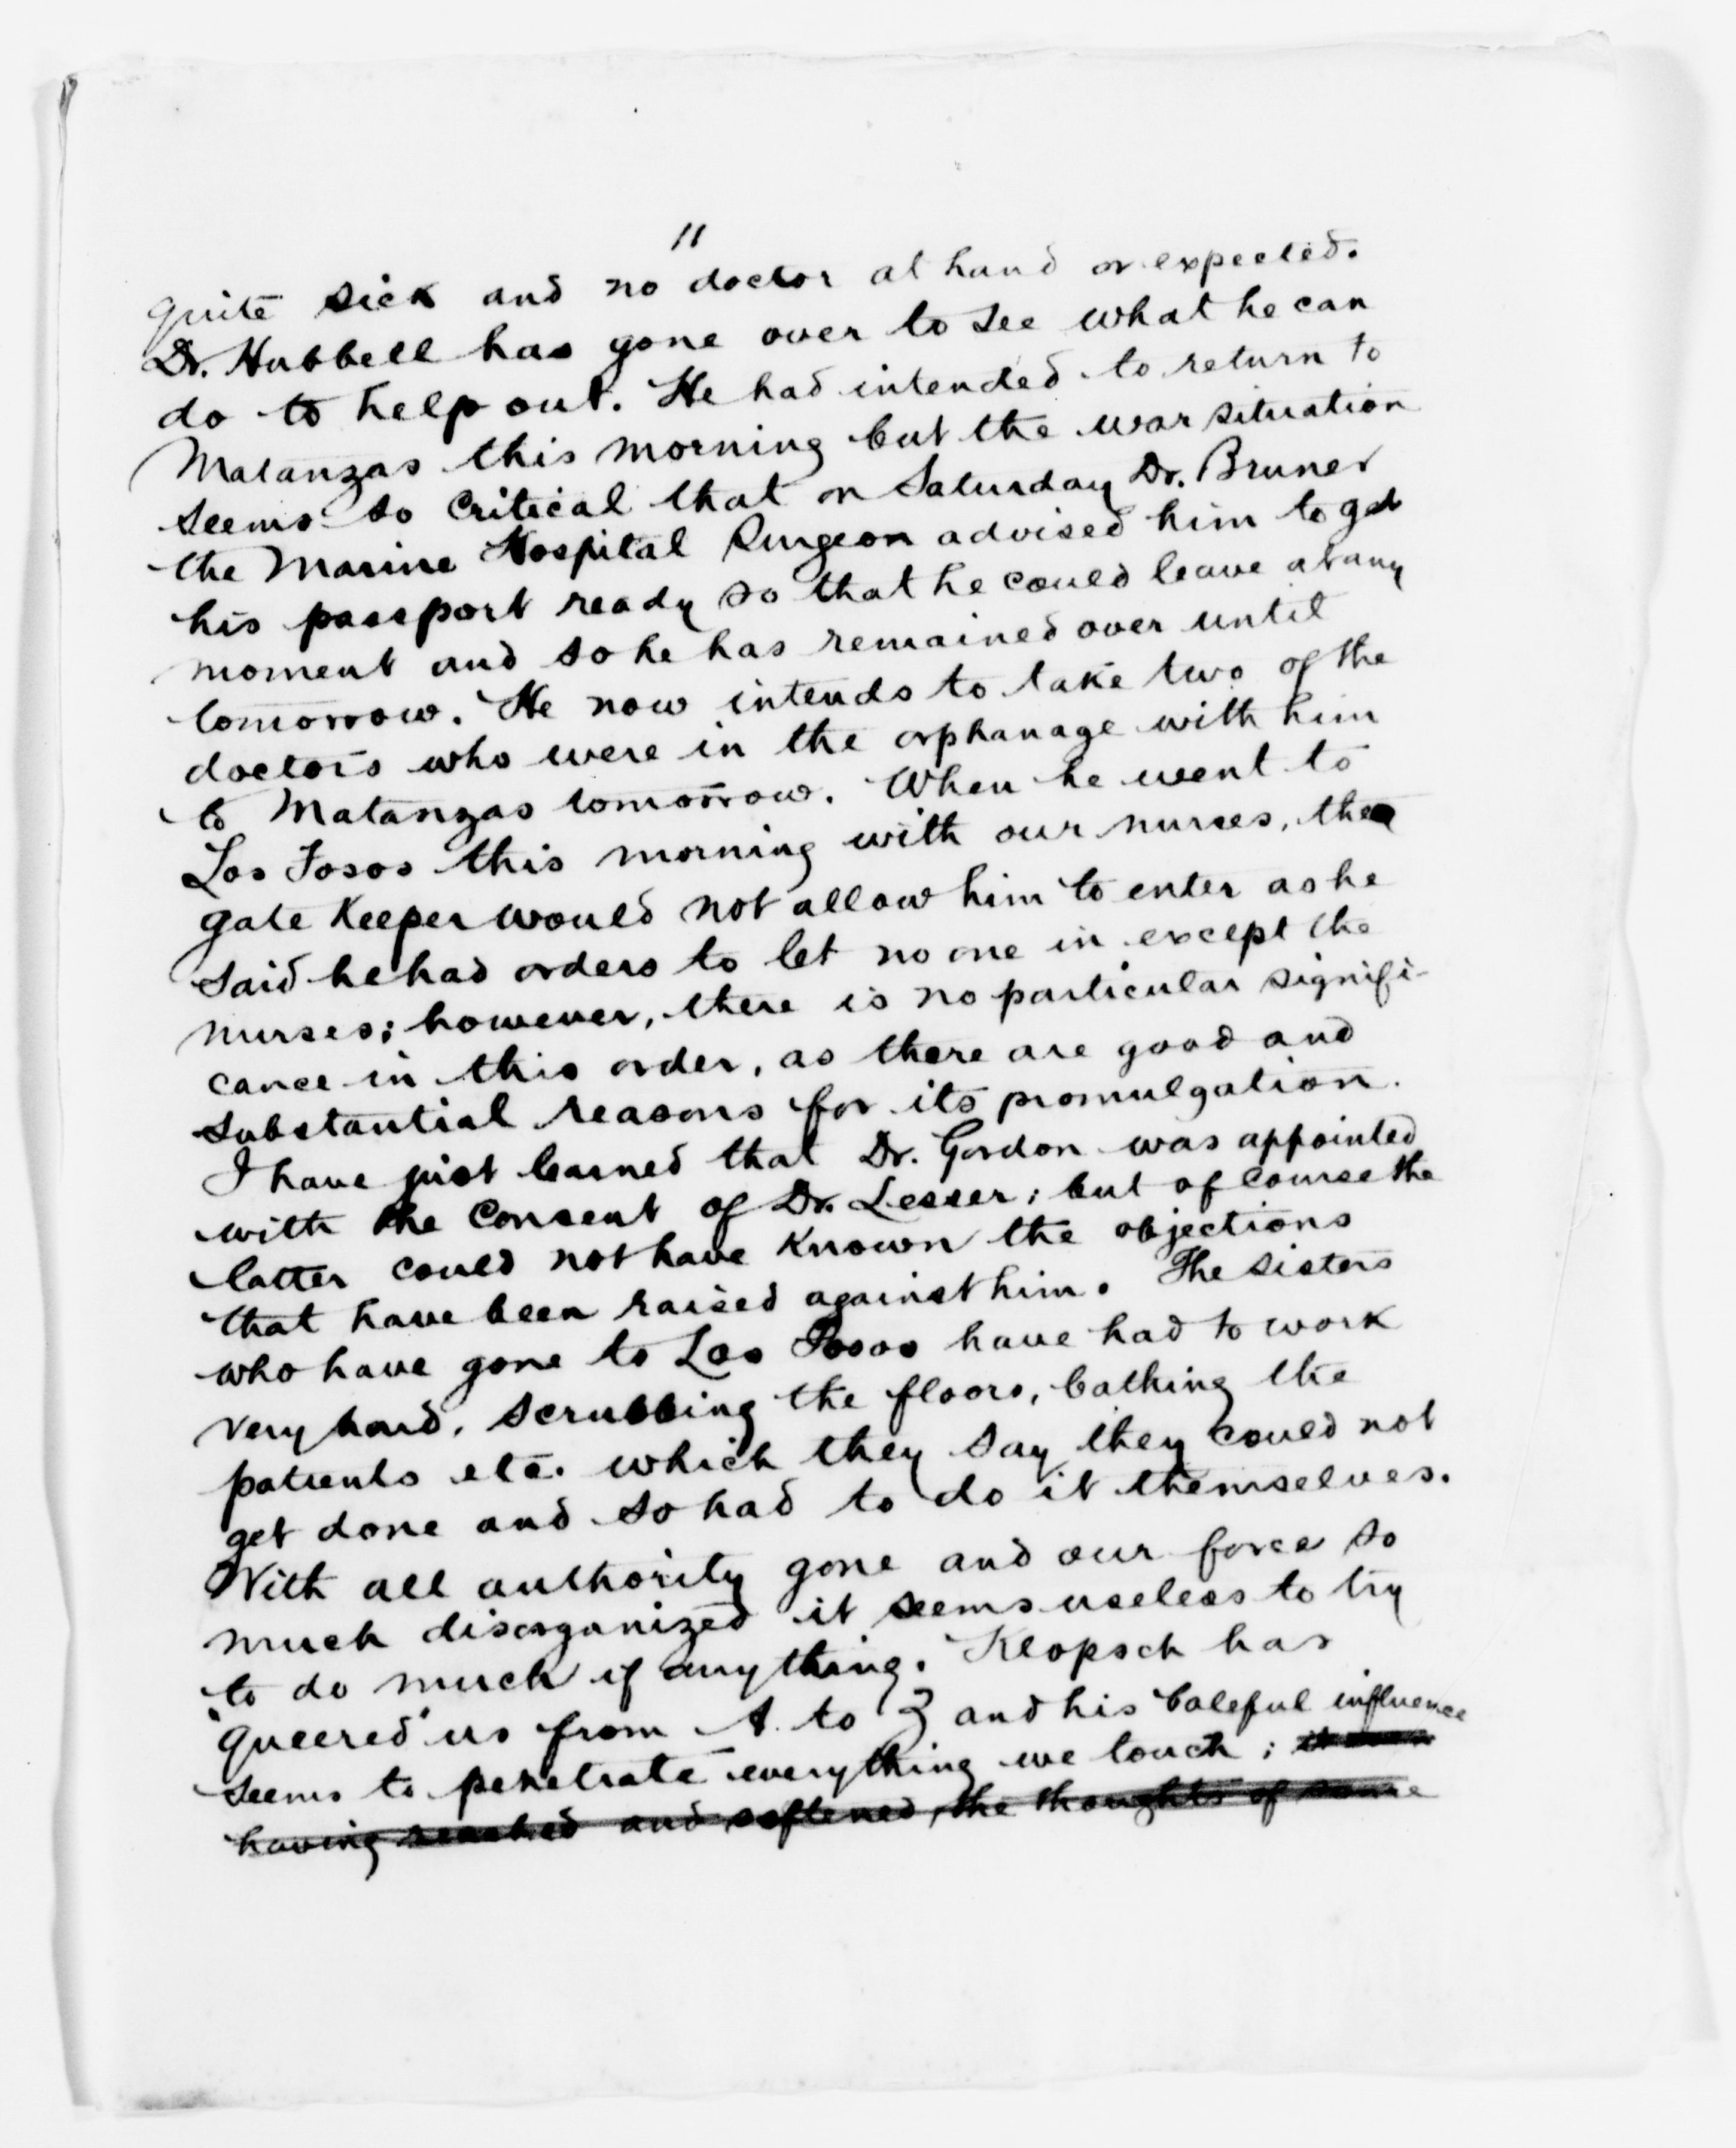 11
quite sick and no doctor at hand or expected.
Dr. Hubbell has gone over to see what he can
do to help out. He had intended to return to
Matanzas this morning but the war situation
seems so critical that on Saturday Dr. Bruner
the Marine Hospital Surgeon advised him to get
his passport ready so that he could leave at any
moment and so he has remained over until
tomorrow. He now intends to take two of the
doctors who were in the orphanage with him
to Matanzas tomorrow. When he went to
Los Fosos this morning with our nurses, the
gate keeper would not allow him to enter as he
said he had orders to let no one in except the
nurses; however, there is no particular signifi-
cance in this order, as there are good and
substantial reasons for its promulgation.
I have just learned that Dr. Gordon was appointed
with the consent of Dr. Lesser; but of course the
latter could not have known the objections
that have been raised against him. The sisters
who have gone to Los Fosos have had to work
very hard, scrubbing the floors, bathing the
patients etc. which they say they could not
get done and so had to do it themselves.
With all authority gone and our force so
much disorganized it seems useless to try
to do much if anything. Klopsch has
"queered" us from A. to Z and his baleful influence
seems to penetrate everything we touch; it
having reached and softened the thoughts of some